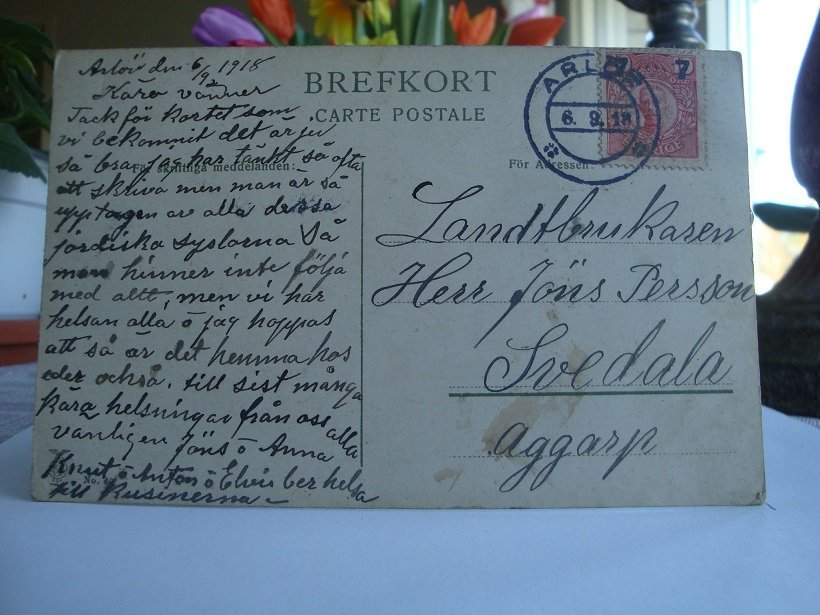 Arlöv den 6/9 1918
Kära vänner
Tack för kortet som
vi bekommit det är ju
så bra, jag har tänkt så ofta
att skriva men man är så
upptagen av alla dessa
jordiska syslorna så
man hinner inte följa
med allt, men vi har
helsan alla o jag hoppas
att så är det hemma hos
eder också. till sist många
kära helsningar från oss alla
vänligen Jöns o Anna
Knut o Anton o Elvir ber helsa
till Kusinerna
För skriftliga meddelanden:
No.
BREFKORT
CARTE POSTALE
För Adressen:
ARLÖF
6. 9. 18
7 7
SVERIGE
Landtbrukaren
Herr Jöns Persson
Svedala
Aggarp